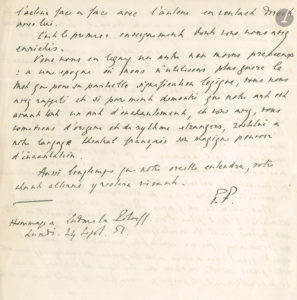 l'acteur face à face avec l'auteur en contact direct
avec lui.
C'est le premier enseignement dont vous nous avez
enrichis.
Vous nous en léguez un autre non moins précieux
: à une époque où nous n'utilisons plus guère le
mot que pour sa partielle signification logique, vous nous
avez rappelé et si purement démontré que notre art est
avant tout un art d'enchantement, et vous avez, vous
comédienne d'origine et de rythme étrangers, restitué à
notre langage théâtral français son magique pouvoir
d'incantation.
Aussi longtemps que notre oreille entendra, votre
chant alterné y restera vivant.
P.P.
Hommage à Ludmilla Pitoëff
Lundi 24 Sept. 51.